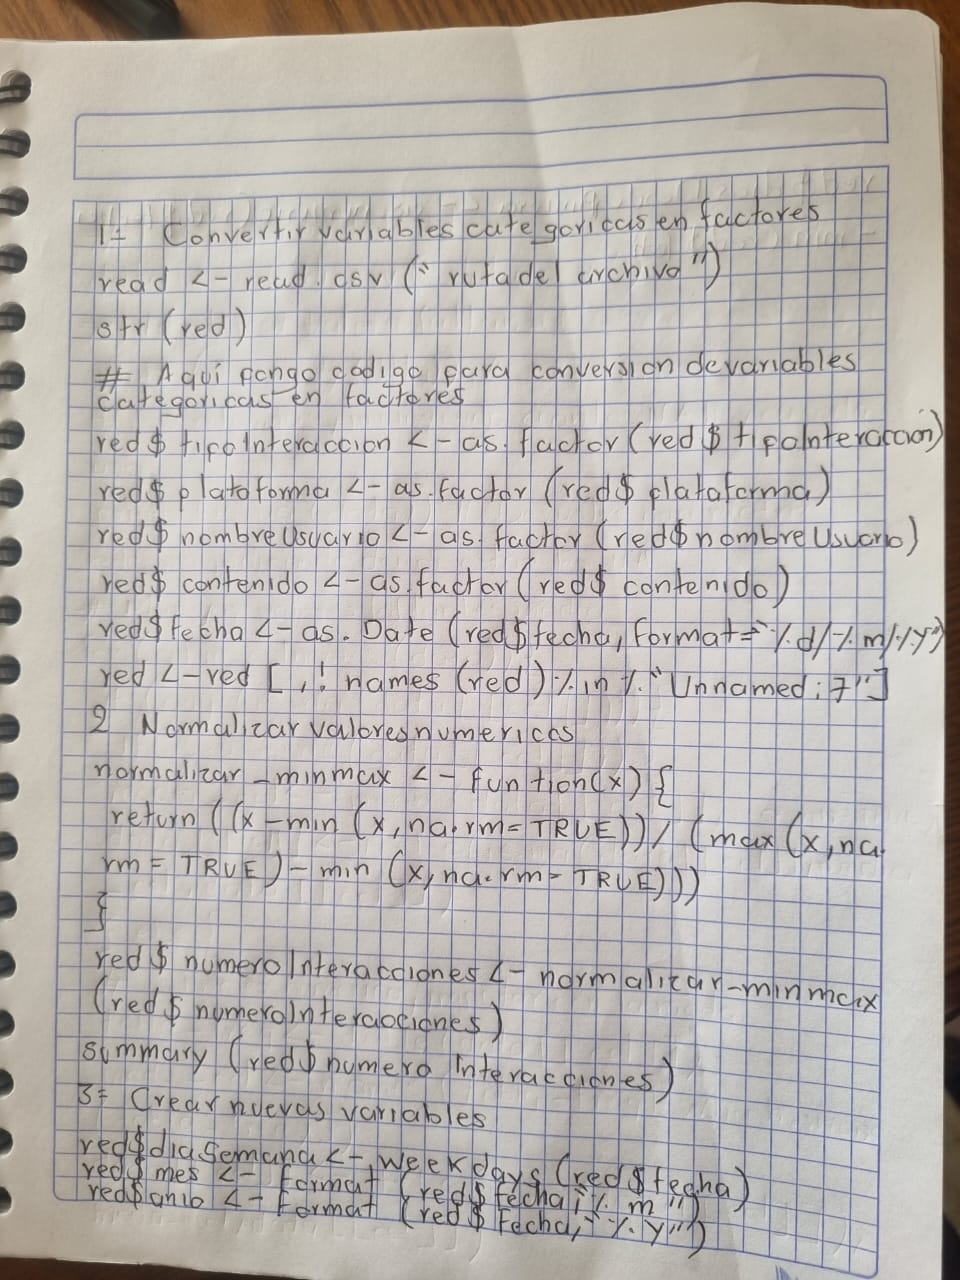 1= Convertir variables categoricas en factores
read <- read.csv ("ruta del archivo")
str (red)
# Aqui pongo codigo para conversion de variables
categoricas en factores
red$ tipoInteraccion <- as.factor (red$ tipoInteraccion)
red$ plataforma <- as.factor (red$ plataforma)
red$ nombreUsuario <- as.factor (red$ nombreUsuario)
red$ contenido <- as.factor (red$ contenido)
red$fecha <- as.Date (red$fecha, Format="%d/%m/%Y")
red <- red [,! names (red) %in% "Unnamed: 7"]
2 Normalizar valores numericos
normalizar_minmax <- funtion(x) {
return ((x-min (x, na.rm=TRUE)) / (max (x, na.
rm = TRUE) - min (x, na.rm=TRUE)))
}
red$ numeroInteracciones <- normalizar_minmax
(red$ numeroInteracciones)
summary (red$ numero Interacciones)
3= Crear nuevas variables
red$diaSemana <- weekdays (red$fecha)
red$mes <- Format (red$fecha, "%m")
red$anio <- Format (red$Fecha, "%Y")